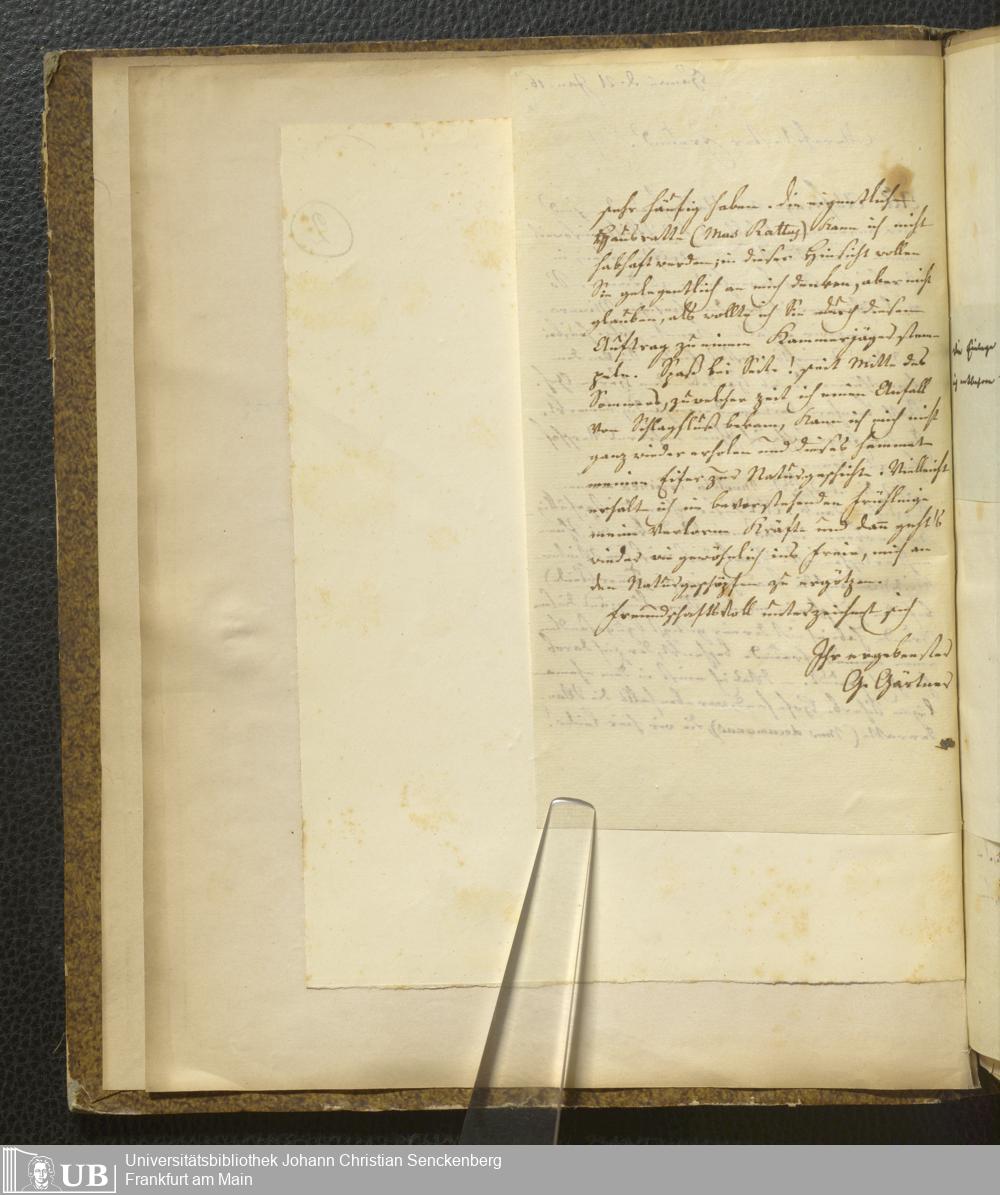 sehr häufig haben. Die eigentliche
Hausratte (Mus Rattus) kann ich nicht
habhaft werden; in dieser Hinsicht wollen
Sie gelegentlich an mich denken, aber nicht
glauben, als wollte ich Sie durch diesen
Auftrag zu einem Kammerjäger stem-
peln. Spaß bei Seite! seit Mitte des
Sommers, zu welcher Zeit ich einen Anfall
von Schlagfluß bekam, kann ich mich nicht
ganz wieder erholen und dieses hemmet
meinen Eifer zur Naturgeschichte. Vielleicht
erhalte ich im bevorstehenden Frühlinge
meine verlorne Kräfte und dann geht's
wieder wie gewöhnlich ins Freie, mich an
den Naturgeschöpfen zu ergötzen.
Freundschaftsvoll unterzeichnet sich
Ihr ergebenster
G. Gärtner
die Einlage
Universitätsbibliothek Johann Christian Senckenberg
Frankfurt am Main
UB